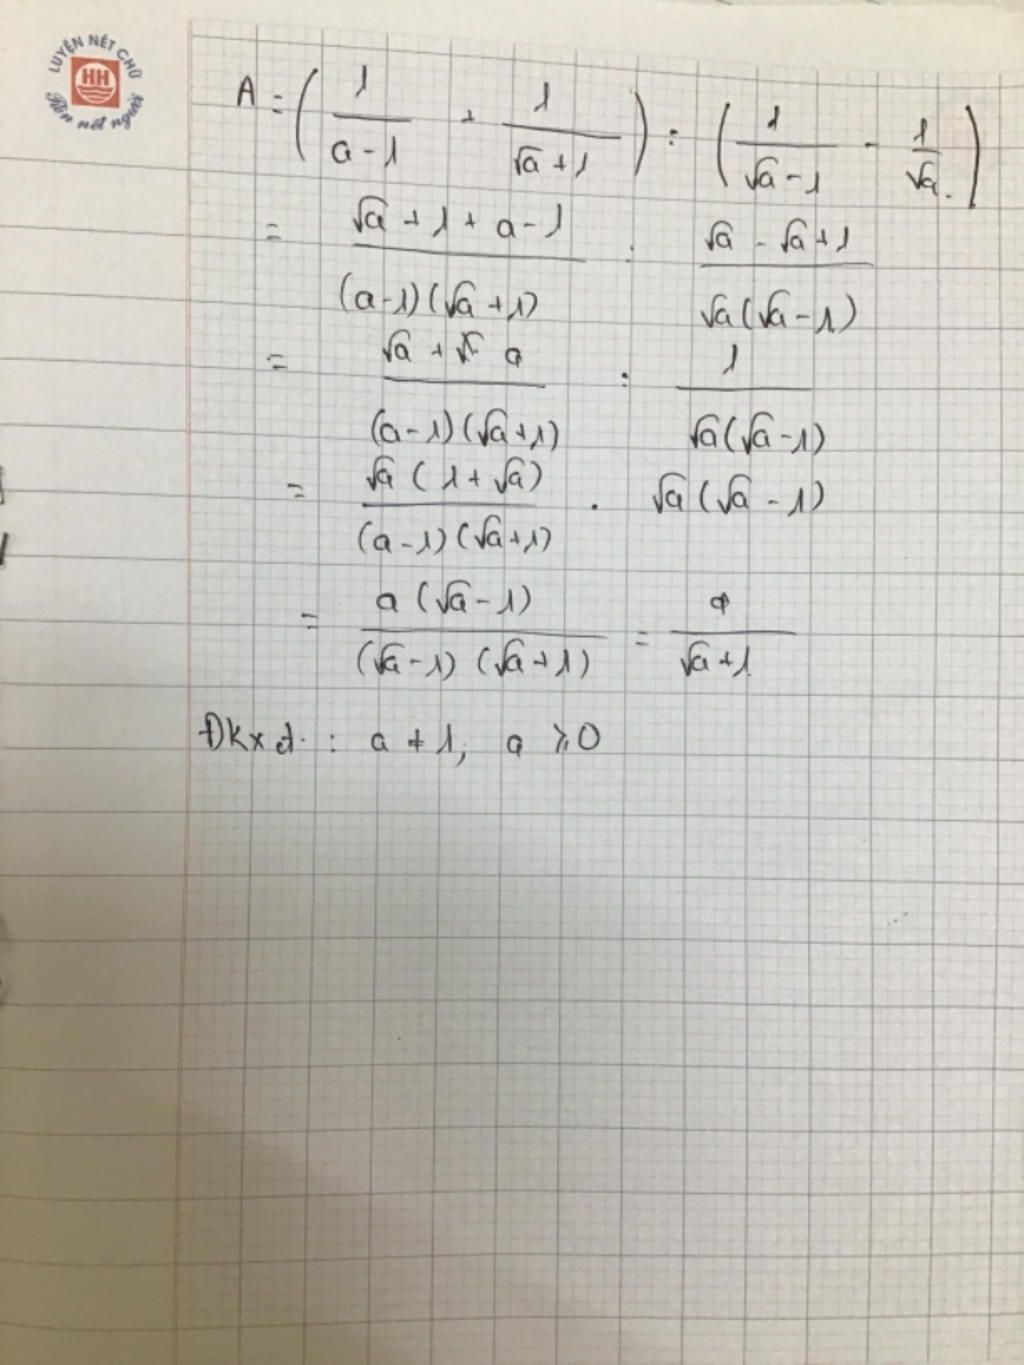 LUYỆN NÉT CHỮ
HH
Rèn nết người
A = ( 1/(a-1) + 1/(√a+1) ) : ( 1/(√a-1) - 1/√a )
= (√a + 1 + a - 1)/((a-1)(√a+1)) : (√a - √a + 1)/(√a(√a-1))
= (√a + a)/((a-1)(√a+1)) : 1/(√a(√a-1))
= (√a(1+√a))/((a-1)(√a+1)) . √a(√a-1)
= (a(√a-1))/((√a-1)(√a+1)) = a/(√a+1)
Đkxđ : a ≠ 1, a ≥ 0